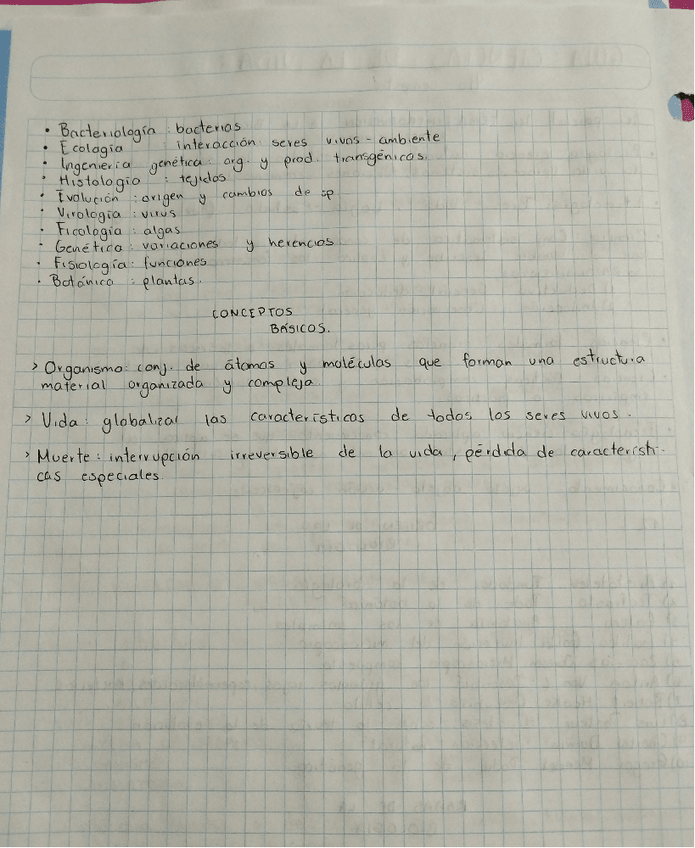 • Bacteriología : bacterias
• Ecología : interacción seres vivos - ambiente
• Ingeniería genética : org. y prod. transgénicos.
• Histología : tejidos
• Evolución : origen y cambios de sp
• Virología : virus
• Ficología : algas
• Genética : variaciones y herencias.
• Fisiología : funciones
• Botánica : plantas.
CONCEPTOS
BÁSICOS.
> Organismo : conj. de átomos y moléculas que forman una estructura
material organizada y compleja
> Vida : globalizar las características de todos los seres vivos.
> Muerte : interrupción irreversible de la vida, pérdida de característi-
cas especiales